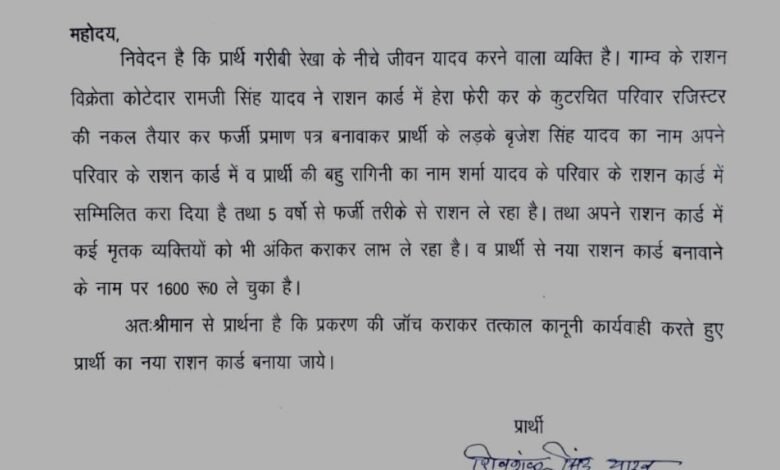 महोदय,
निवेदन है कि प्रार्थि गरीबी रेखा के नीचे जीवन यादव करने वाला व्यक्ति है। गाम्व के राशन
विक्रेता कोटेदार रामजी सिंह यादव ने राशन कार्ड में हेरा फेरी कर के कुटरचित परिवार रजिस्टर
की नकल तैयार कर फर्जी प्रमाण पत्र बनावाकर प्रार्थी के लड़के बृजेश सिंह यादव का नाम अपने
परिवार के राशन कार्ड में व प्रार्थी की बहु रागिनी का नाम शर्मा यादव के परिवार के राशन कार्ड में
सम्मिलित करा दिया है तथा 5 वर्षो से फर्जी तरीके से राशन ले रहा है। तथा अपने राशन कार्ड में
कई मृतक व्यक्तियों को भी अंकित कराकर लाभ ले रहा है। व प्रार्थी से नया राशन कार्ड बनावाने
के नाम पर 1600 रू0 ले चुका है।
अतःश्रीमान से प्रार्थना है कि प्रकरण की जॉच कराकर तत्काल कानूनी कार्यवाही करते हुए
प्रार्थी का नया राशन कार्ड बनाया जाये।
प्रार्थी
सिंह यादव